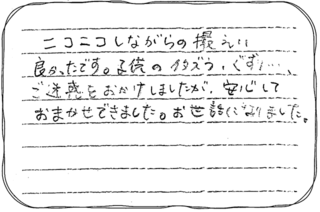 ニコニコしながらの撮えい
良かったです。子供のイタズラ、ぐずり…、
ご迷惑をおかけしましたが、安心して
おまかせできました。お世話になりました。